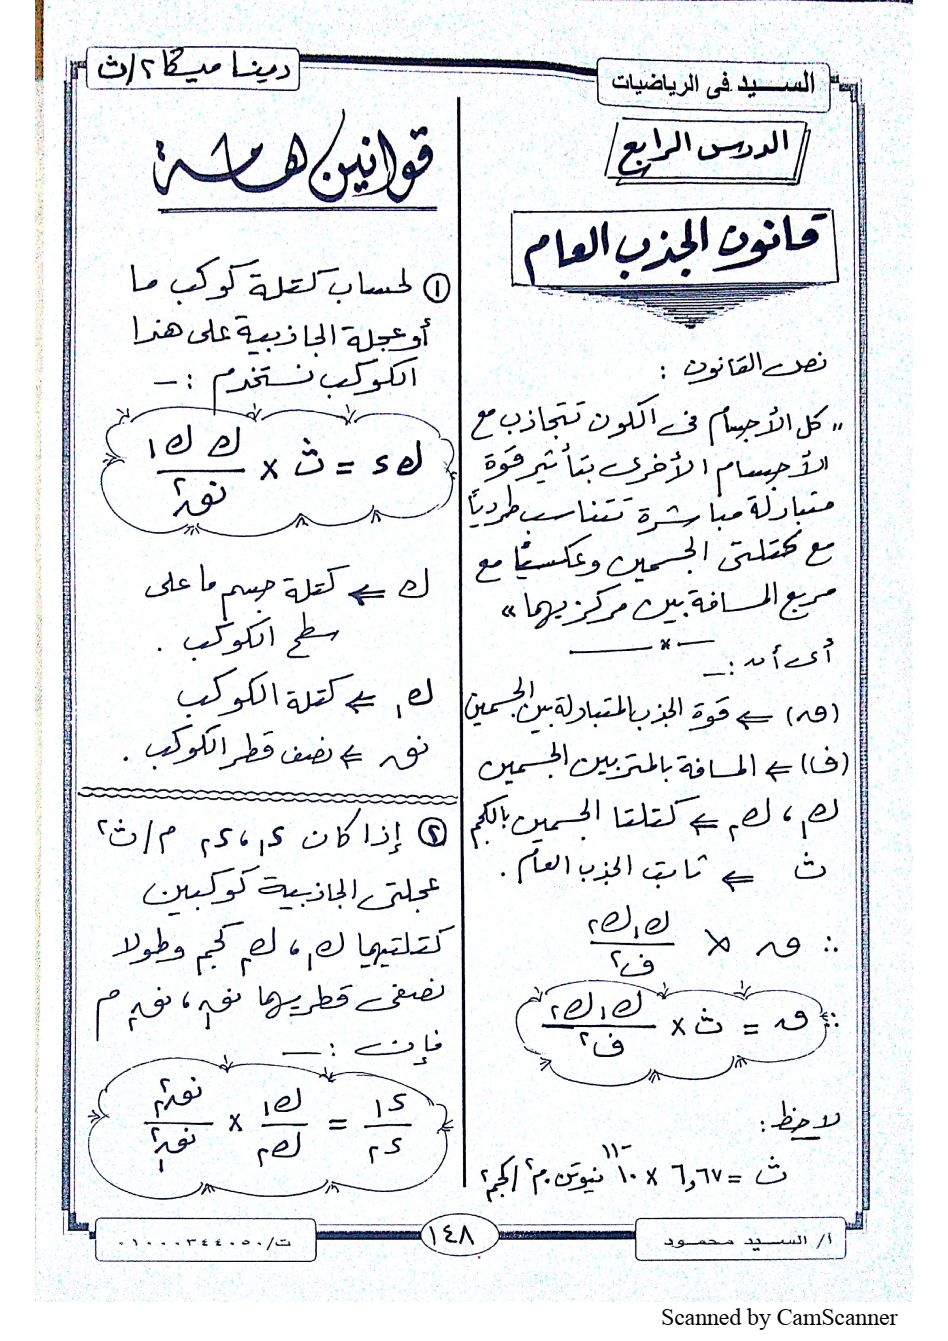 السيد فى الرياضيات
دينا ميكا ٢/ث
الدرس الرابع
قانون الجذب العام
نص القانون :
" كل الأجسام فى الكون تتجاذب مع
الأجسام الأخرى بتأثير قوة
متبادلة مباشرة تتناسب طرديًا
مع كتلتى الجسمين وعكسيًا مع
مربع المسافة بين مركزيهما "
أى أن :ـ
(ق) ⇐ قوة الجذب المتبادلة بين الجسمين
(ف) ⇐ المسافة بالمتر بين الجسمين
ك١ ، ك٢ ⇐ كتلتا الجسمين بالكجم
ث ⇐ ثابت الجذب العام .
∴ ق ∝ ك١ ك٢ / ف٢
∴ ق = ث × ك١ ك٢ / ف٢
لاحظ :
ث = ٦,٦٧ × ١٠-١١ نيوتن.م٢/كجم٢
قوانين هامة
① لحساب كتلة كوكب ما
أو عجلة الجاذبية على هذا
الكوكب نستخدم :ـ
ك ء = ث × ك ك١ / نق٢
ك ⇐ كتلة جسم ما على
سطح الكوكب .
ك١ ⇐ كتلة الكوكب
نق ⇐ نصف قطر الكوكب .
② إذا كان ء١ ، ء٢ م/ث٢
عجلتى الجاذبية كوكبين
كتلتيهما ك١ ، ك٢ كجم وطولا
نصفى قطريهما نق١ ، نق٢ م
فإن :ـ
ء١ / ء٢ = ك١ / ك٢ × نق٢٢ / نق١٢
أ/ السيد محمود
١٤٨
ت/٠١٠٠٠٣٤٤٠٥٠
Scanned by CamScanner